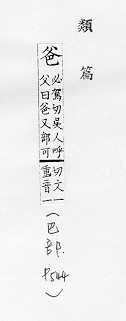 類篇
爸
必駕切吳人呼
父曰爸又部可
切文一
重音一
(巴部. P544)